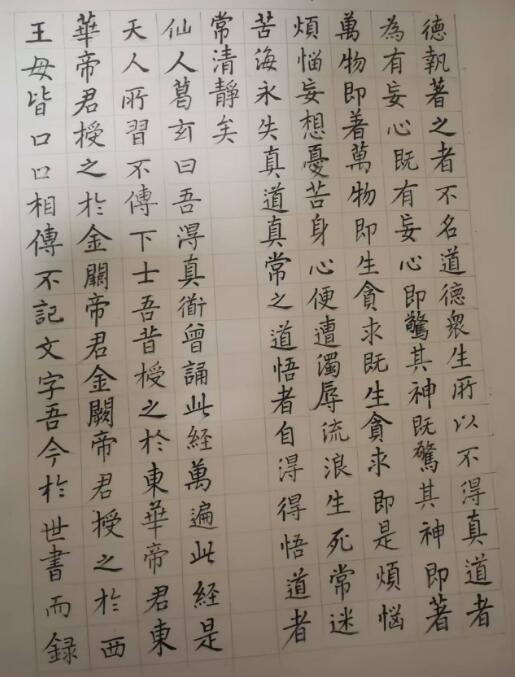 德執著之者不名道德衆生所以不得真道者
為有妄心既有妄心即驚其神既驚其神即著
萬物即著萬物即生貪求既生貪求即是煩惱
煩惱妄想憂苦身心便遭濁辱流浪生死常迷
苦海永失真道真常之道悟者自淂得悟道者
常清靜矣
仙人葛玄曰吾淂真衜曾誦此經萬遍此經是
天人所習不傳下士吾昔授之於東華帝君東
華帝君授之於金闕帝君金闕帝君授之於西
王母皆口口相傳不記文字吾今於世書而録